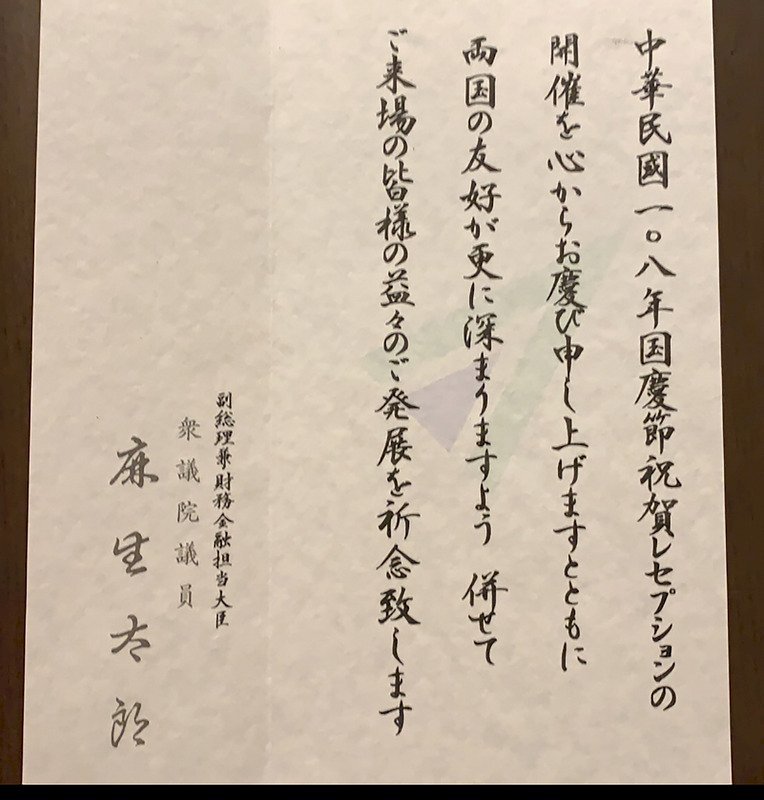 中華民國一〇八年国慶節祝賀レセプションの
開催を心からお慶び申し上げますとともに
両国の友好が更に深まりますよう　併せて
ご来場の皆様の益々のご発展を祈念致します
副総理兼財務金融担当大臣
衆議院議員
麻生太郎